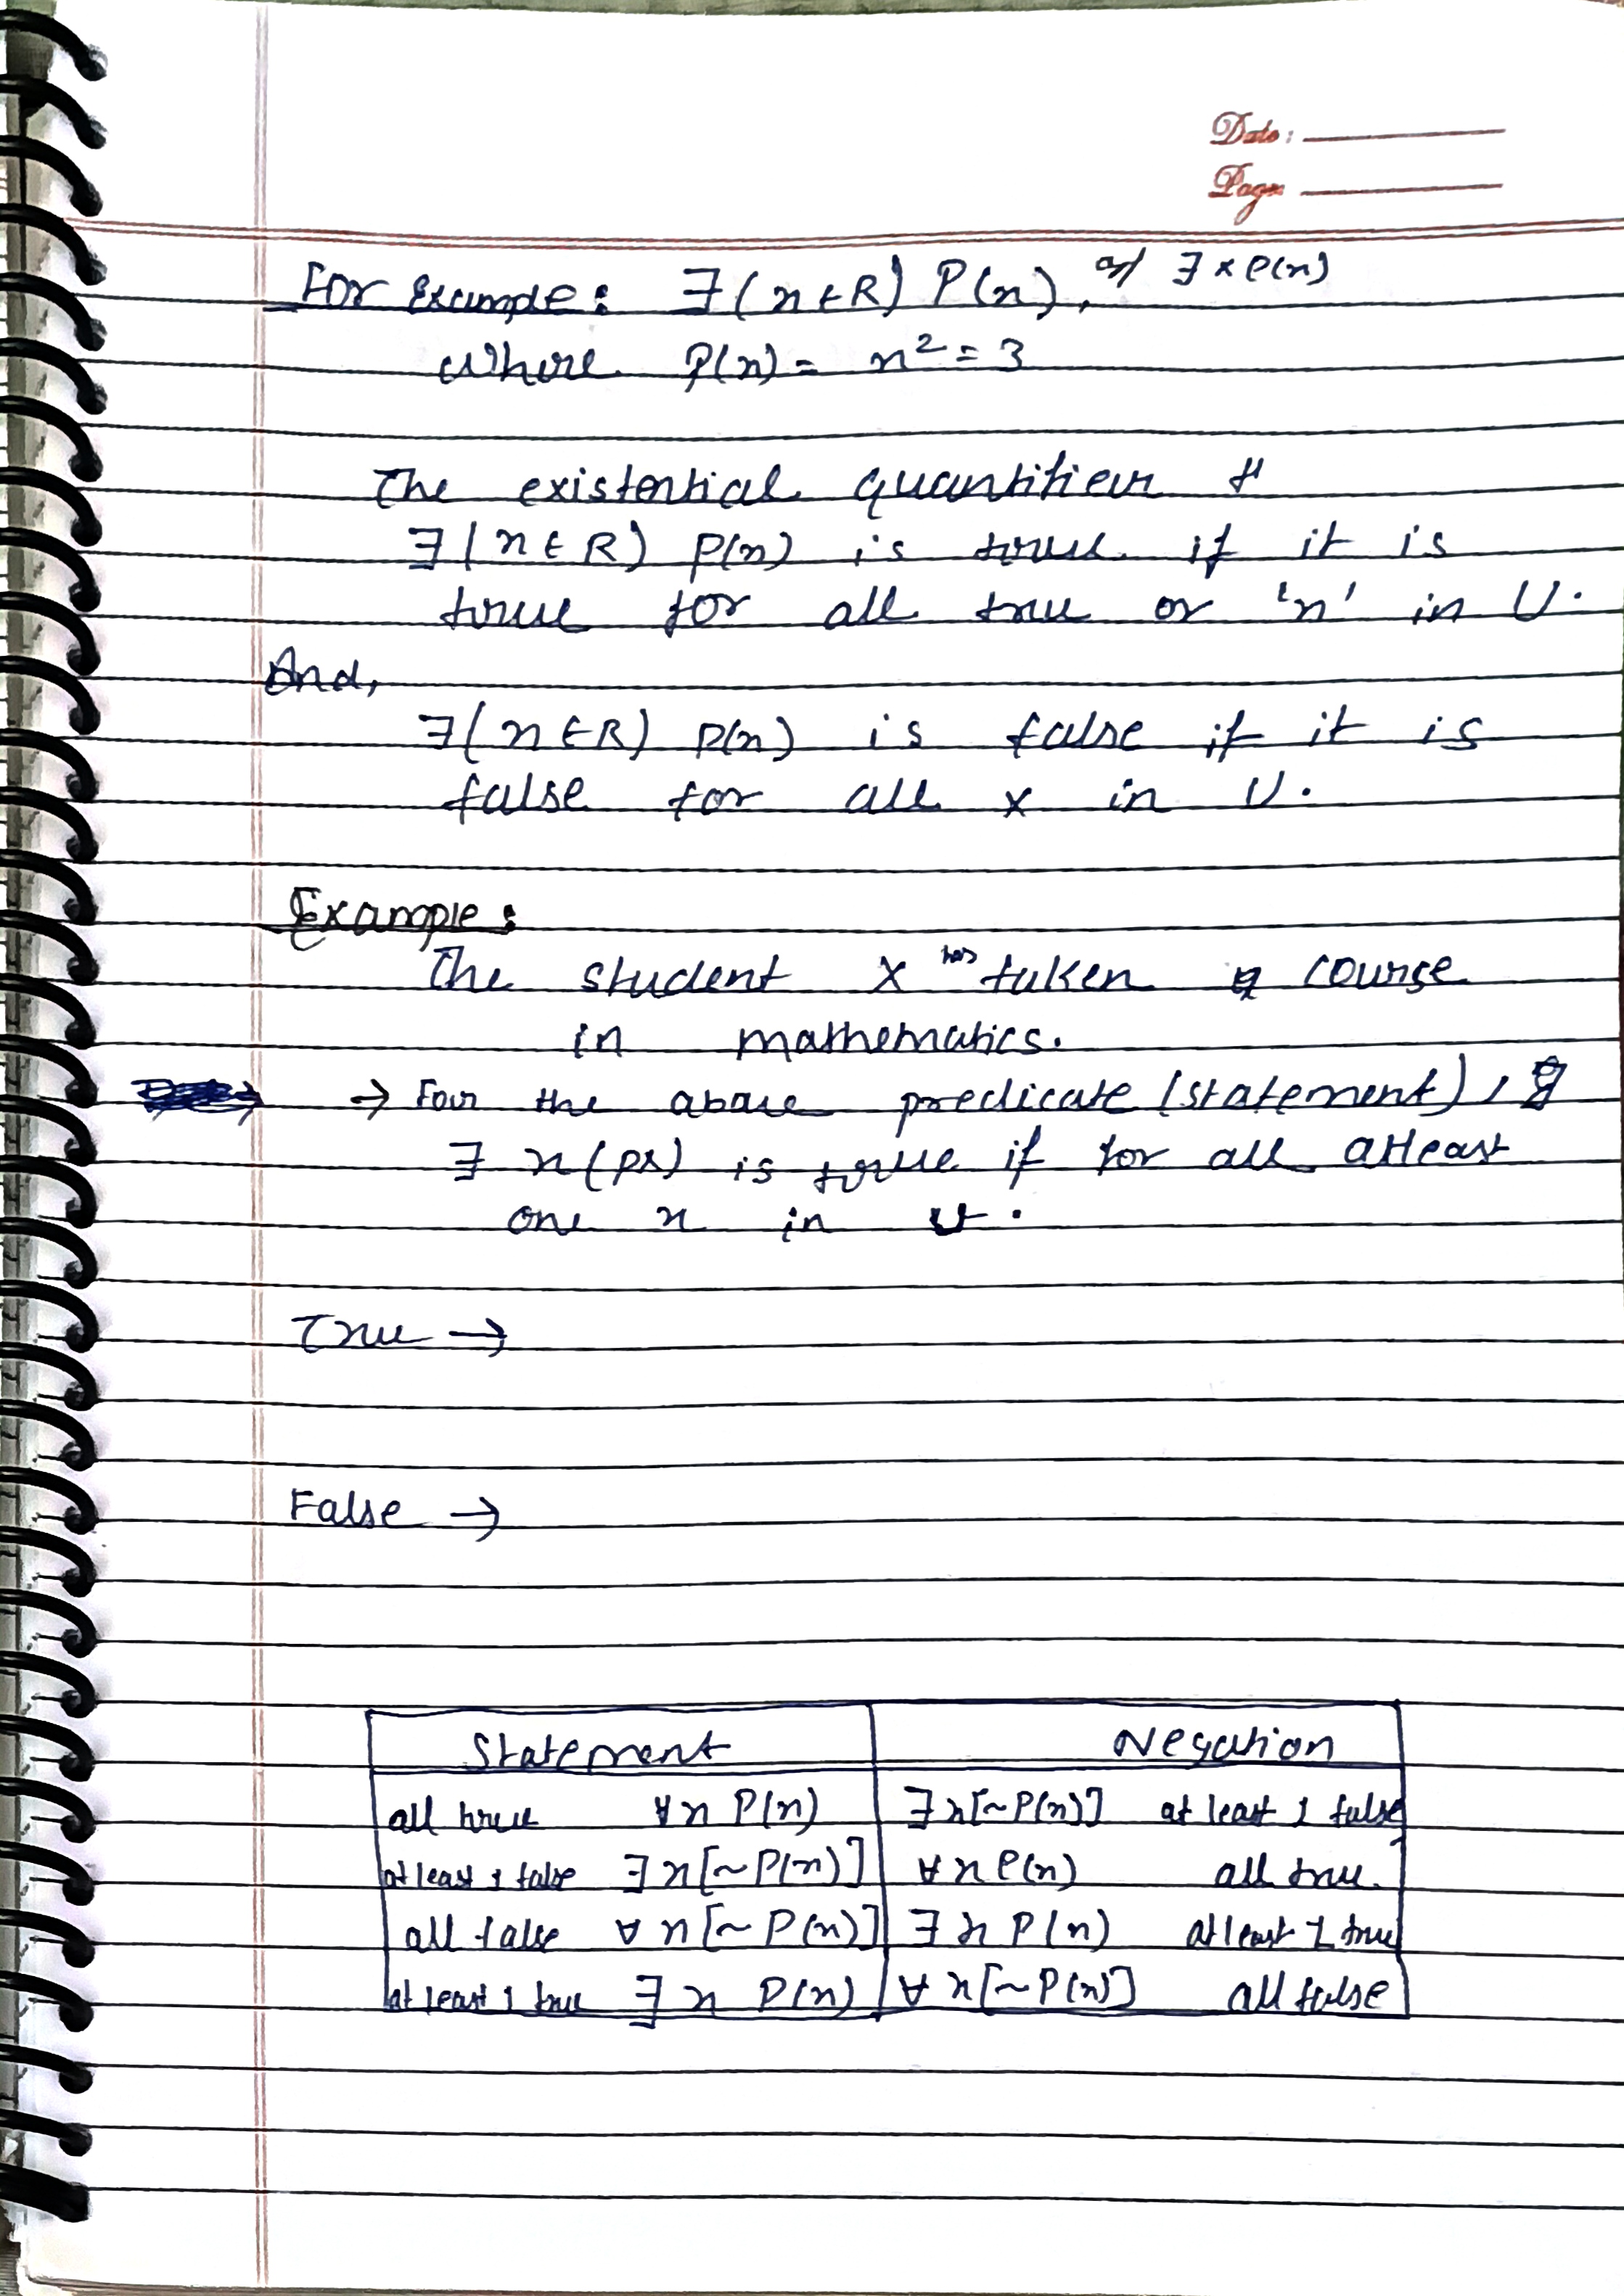 Date:
Page
For Example: ∃(x∈R) P(x), or/ ∃x P(x)
where P(x) = x² = 3
The existential quantifier
∃(x∈R) P(x) is true if it is
true for all true or 'x' in U.
And,
∃(x∈R) P(x) is false if it is
false for all x in U.
Example:
The student x has taken a course
in mathematics.
→ For the above predicate (statement),
∃ x(px) is true if for all atleast
one x in U.
True →
False →
Statement Negation
all true ∀x P(x) ∃x[~P(x)] at least 1 false
at least 1 false ∃x[~P(x)] ∀x P(x) all true.
all false ∀x[~P(x)] ∃x P(x) at least 1 true
at least 1 true ∃x P(x) ∀x[~P(x)] all false